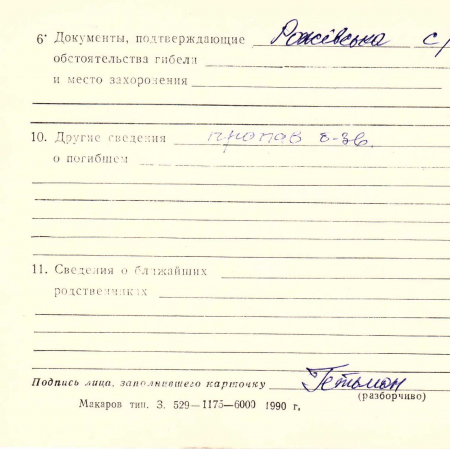 6· Документы, подтверждающие Рожівська с/
обстоятельства гибели
и место захоронения
10. Другие сведения пропав б-зв.
о погибшем
11. Сведения о ближайших
родственниках
Подпись лица, заполнившего карточку Гетьман
(разборчиво)
Макаров тип. З. 529—1175—6000 1990 г,